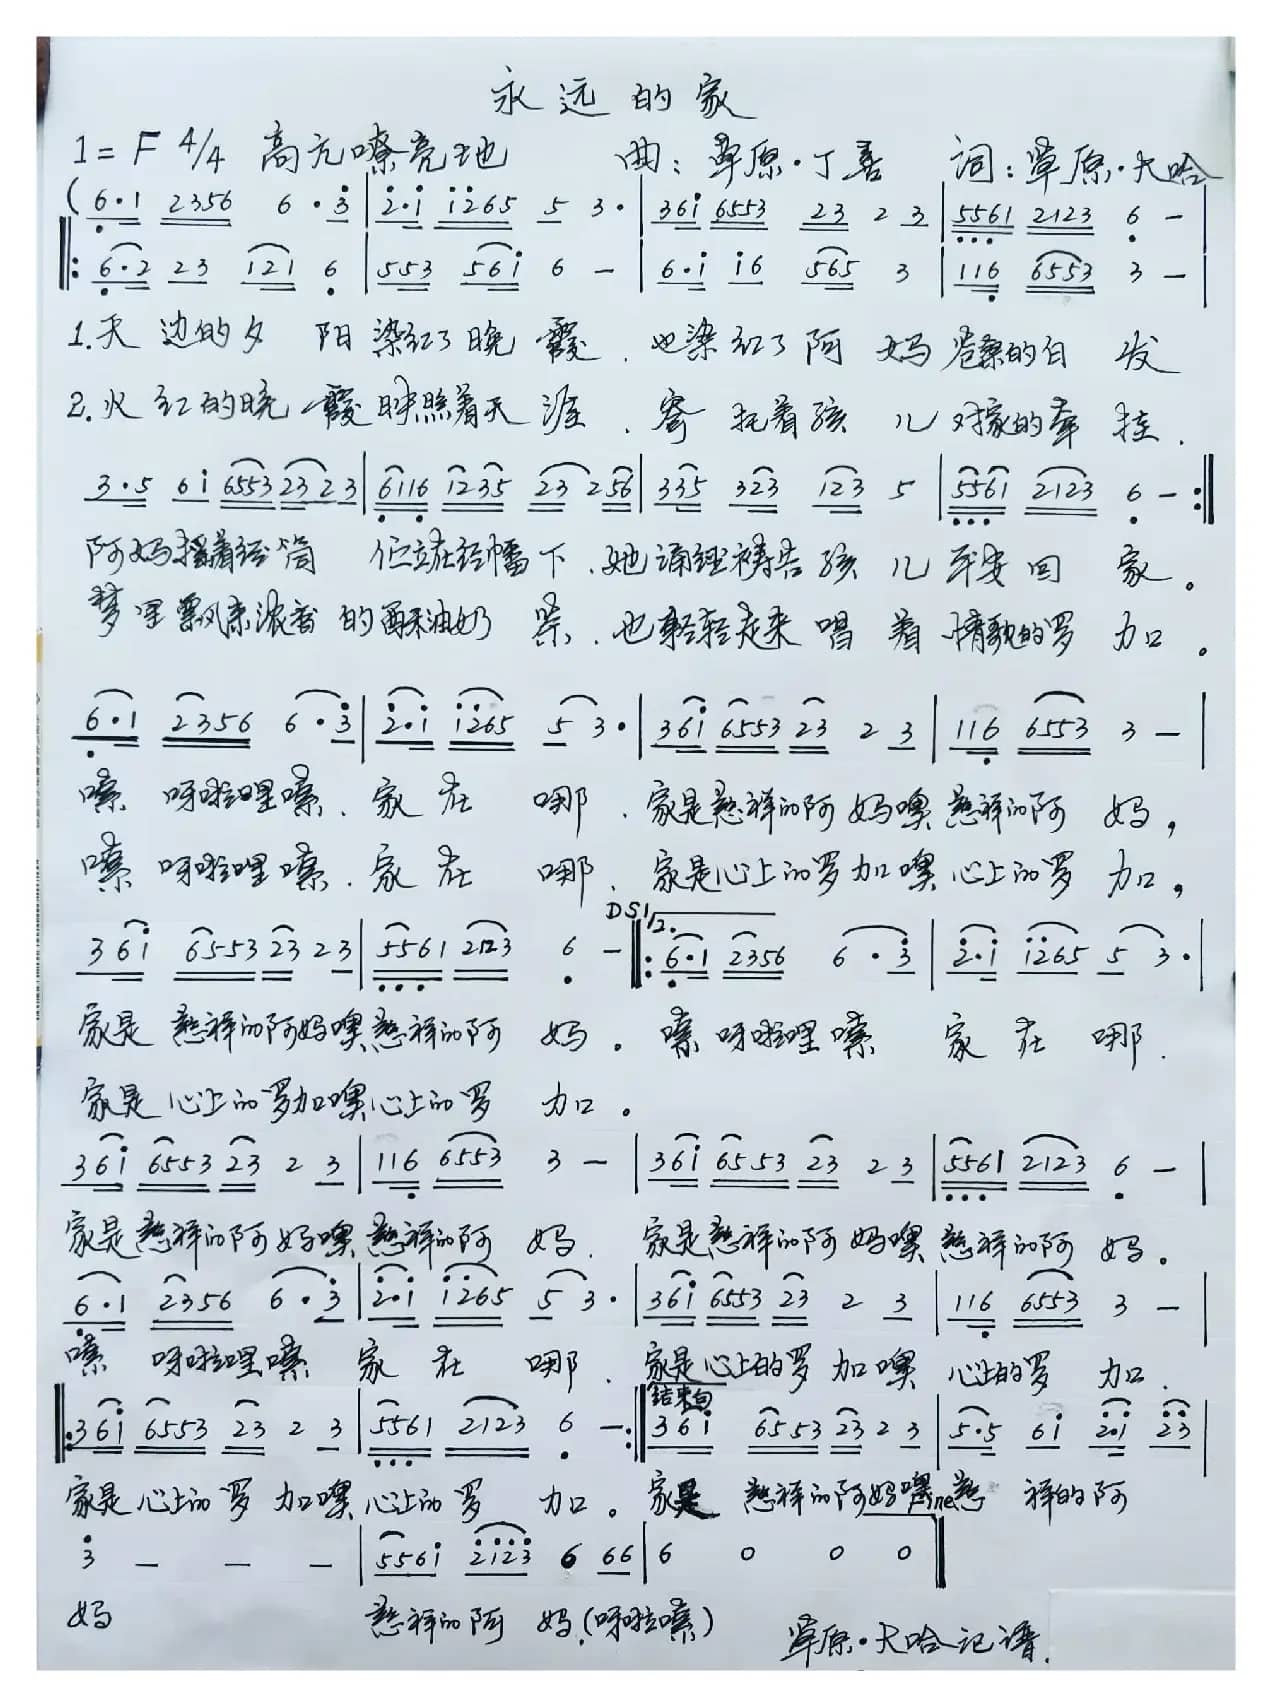 永远的家
1=F 4/4 高亢嘹亮地 曲:草原·丁喜 词:草原·大哈
(6·1 2356 6·3 | 2·i i265 5 3· | 36i 6553 23 2 3 | 5561 2123 6 —
‖: 6·2 23 121 6 | 553 56i 6 — | 6·i i6 565 3 | 116 6553 3 — |
1.天边的夕阳染红了晚霞.也染红了阿妈苍桑的白发
2.火红的晚霞映照着天涯.寄托着孩儿对家的牵挂.
3·5 6i 6553 23 2 3 | 6116 1235 23 256 | 335 323 123 5 | 5561 2123 6 — :‖
阿妈摇着经筒 伫立在经幡下.她诵经祷告孩儿平安回家。
梦里飘来浓香的酥油奶茶.也轻轻走来唱着情歌的罗加。
6·1 2356 6·3 | 2·i i265 5 3· | 36i 6553 23 2 3 | 116 6553 3 — |
嗦呀啦哩嗦.家在哪.家是慈祥的阿妈噢慈祥的阿妈,
嗦呀啦哩嗦.家在哪.家是心上的罗加噢心上的罗加,
DS1/2.
36i 6553 23 2 3 | 5561 2123 6 — ‖: 6·1 2356 6·3 | 2·i i265 5 3· |
家是慈祥的阿妈噢慈祥的阿妈。嗦呀啦哩嗦 家在哪.
家是心上的罗加噢心上的罗加。
36i 6553 23 2 3 | 116 6553 3 — | 36i 6553 23 2 3 | 5561 2123 6 — |
家是慈祥的阿妈噢慈祥的阿妈.家是慈祥的阿妈噢慈祥的阿妈。
6·1 2356 6·3 | 2·i i265 5 3· | 36i 6553 23 2 3 | 116 6553 3 — |
嗦呀啦哩嗦 家在哪.家是心上的罗加噢心上的罗加.
结束句
‖: 36i 6553 23 2 3 | 5561 2123 6 — :‖ 36i 6553 23 2 3 | 5·5 6i 2·i 23 |
家是心上的罗加噢心上的罗加。家是慈祥的阿妈噢慈祥的阿
Fine
3 — — — | 556i 2123 6 66 | 6 0 0 0 ‖
妈 慈祥的阿妈.(呀啦嗦)
草原·大哈记谱.